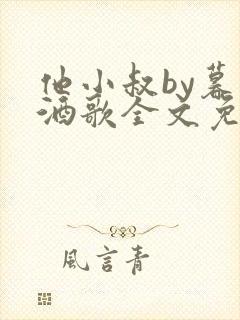 他小叔by幕
酒歌全文免
風言青